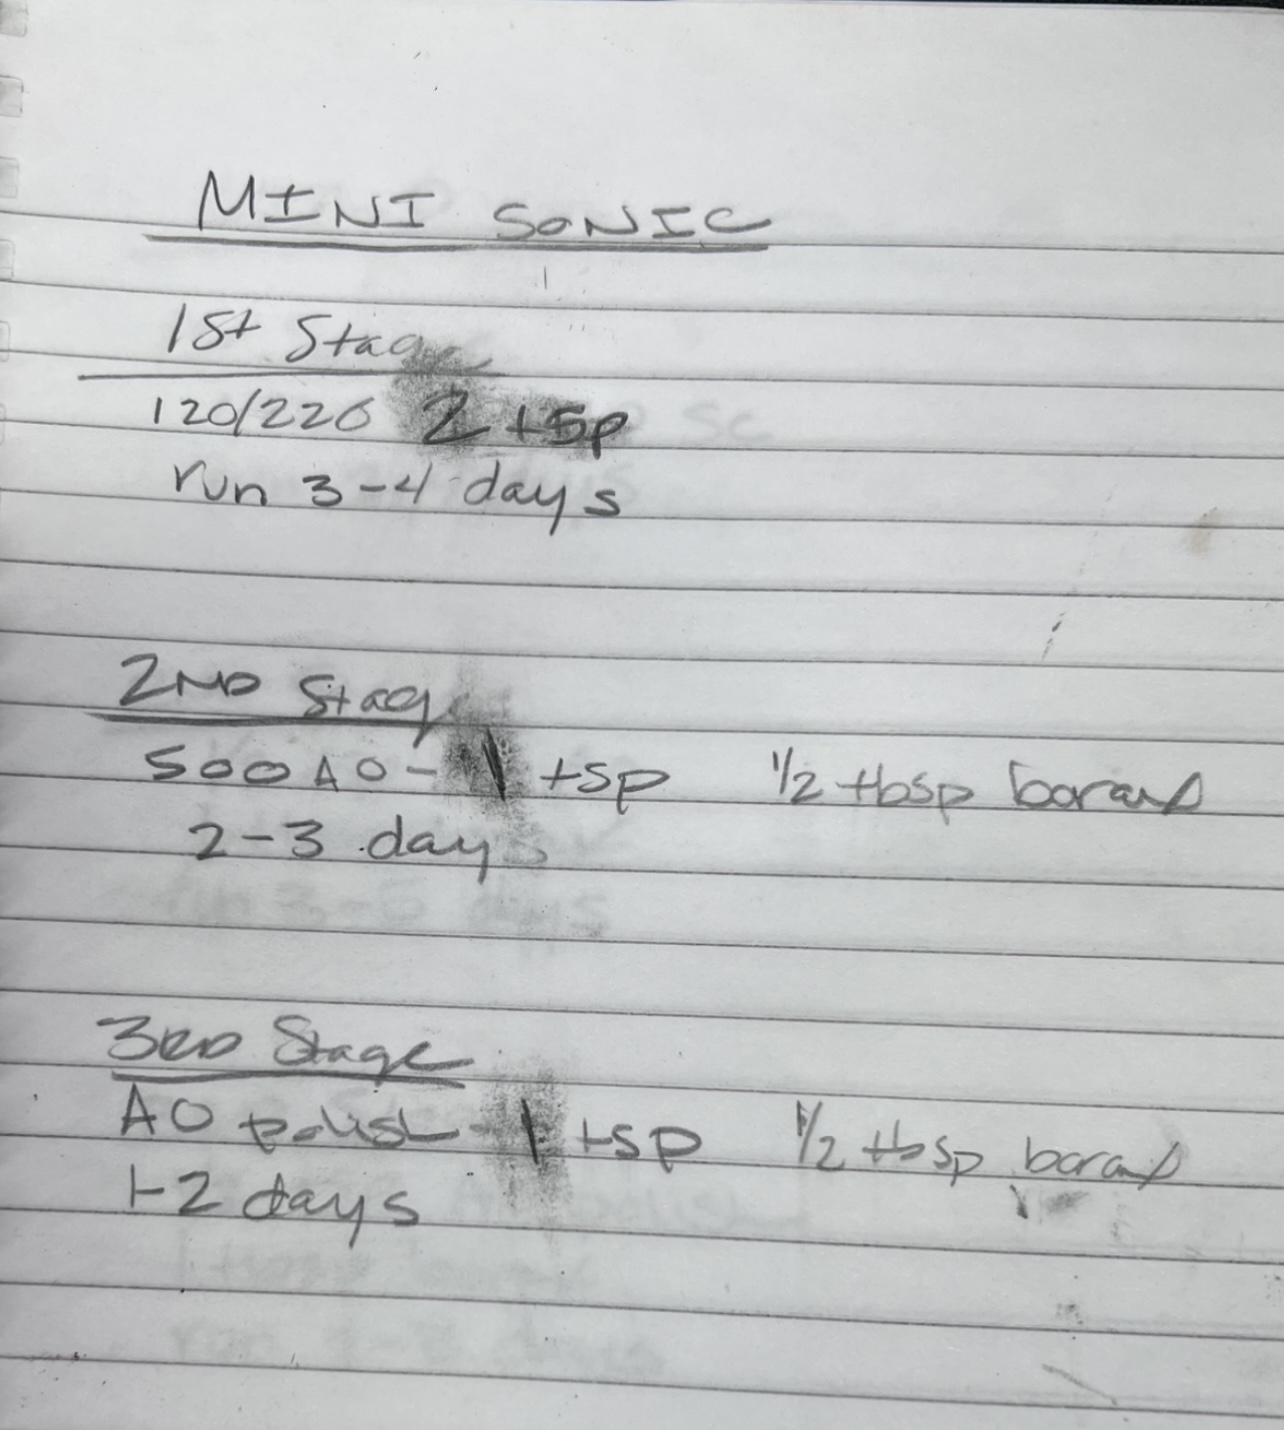 MINI SONIC
1st Stage
120/220 2 tsp
run 3-4 days
2ND Stage
500 AO - 1 tsp 1/2 tbsp borax
2-3 days
3RD Stage
AO polish - 1 tsp 1/2 tbsp borax
1-2 days